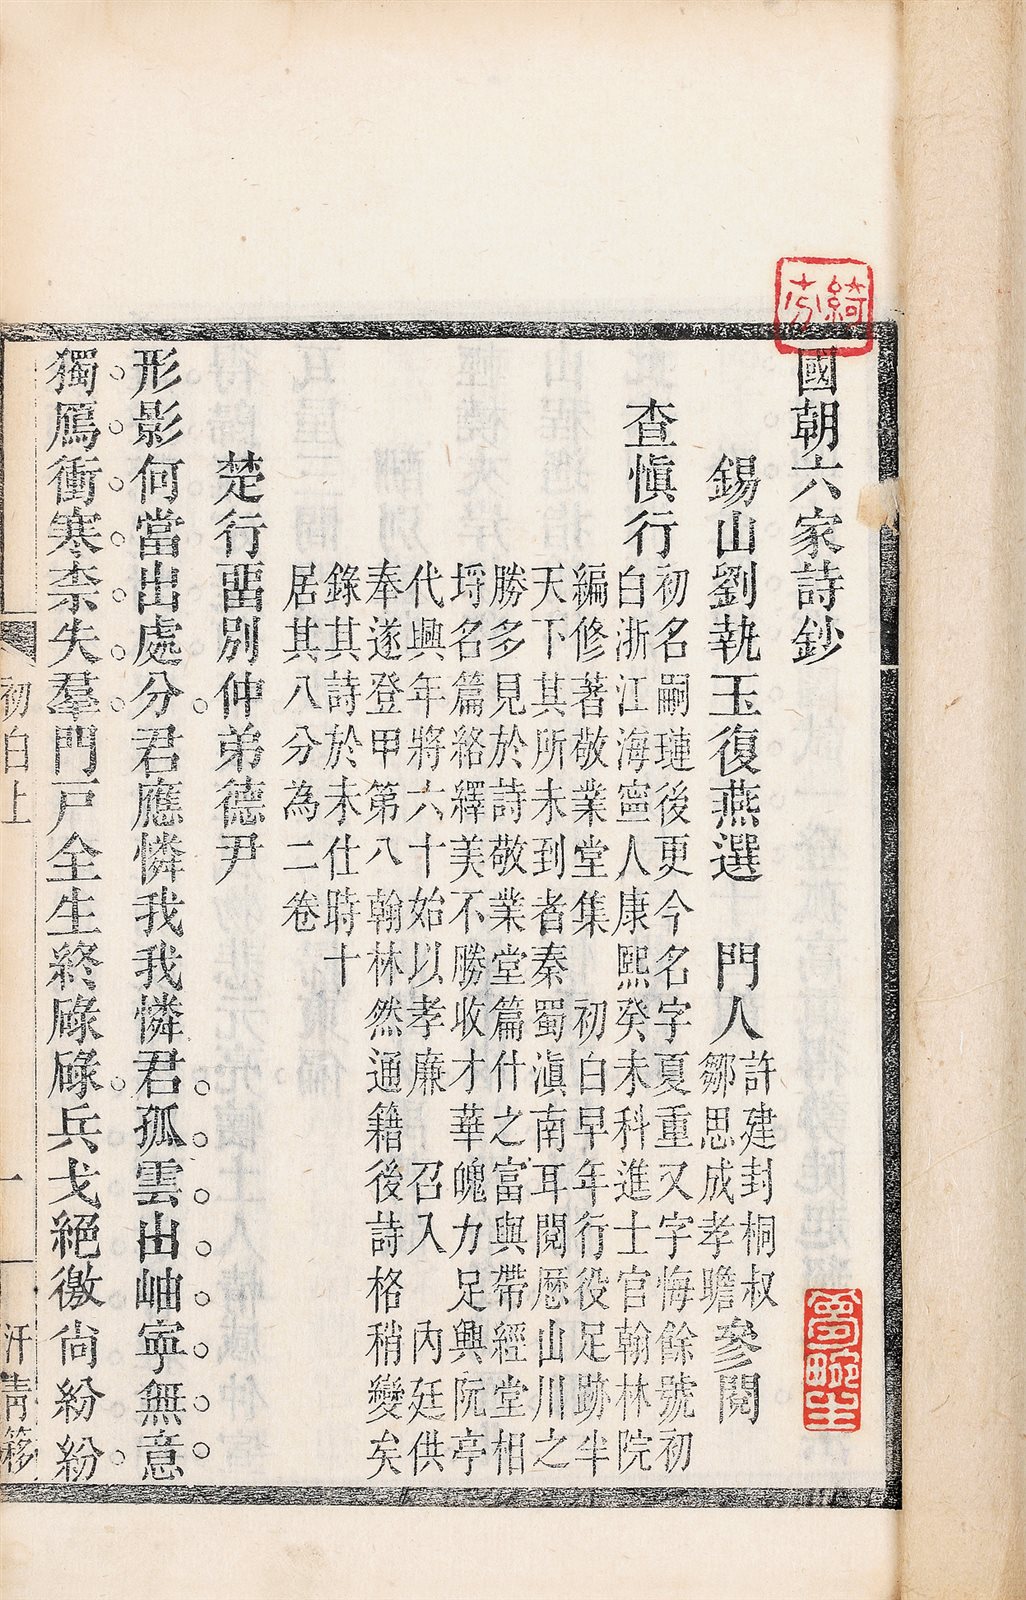 綺
國朝六家詩鈔
錫山劉執玉復燕選　門人許建封桐叔
鄒思成孝瞻參閱
查慎行初名嗣璉後更今名字夏重又字悔餘號初
白浙江海寧人康熙癸未科進士官翰林院
編修著敬業堂集　初白早年行役足跡半
天下其所未到者秦蜀滇南耳閱歷山川之
勝多見於詩敬業堂篇什之富與帶經堂相
埒名篇絡繹美不勝收才華魄力足興阮亭
代興年將六十始以孝廉　召入　內廷供
奉遂登甲第入翰林然通籍後詩格稍變矣
錄其詩於未仕時十
居其八分為二卷
楚行畱別仲弟德尹
形影何當出處分君應憐我我憐君孤雲出岫寧無意
獨鴈衝寒柰失羣門戶全生終碌碌兵戈絕徼尙紛紛
初白上
一
汗青簃